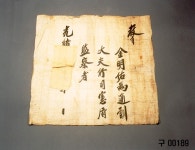 敎
金明佑爲通訓
大夫行司憲府
監察者
光緖
구 00189